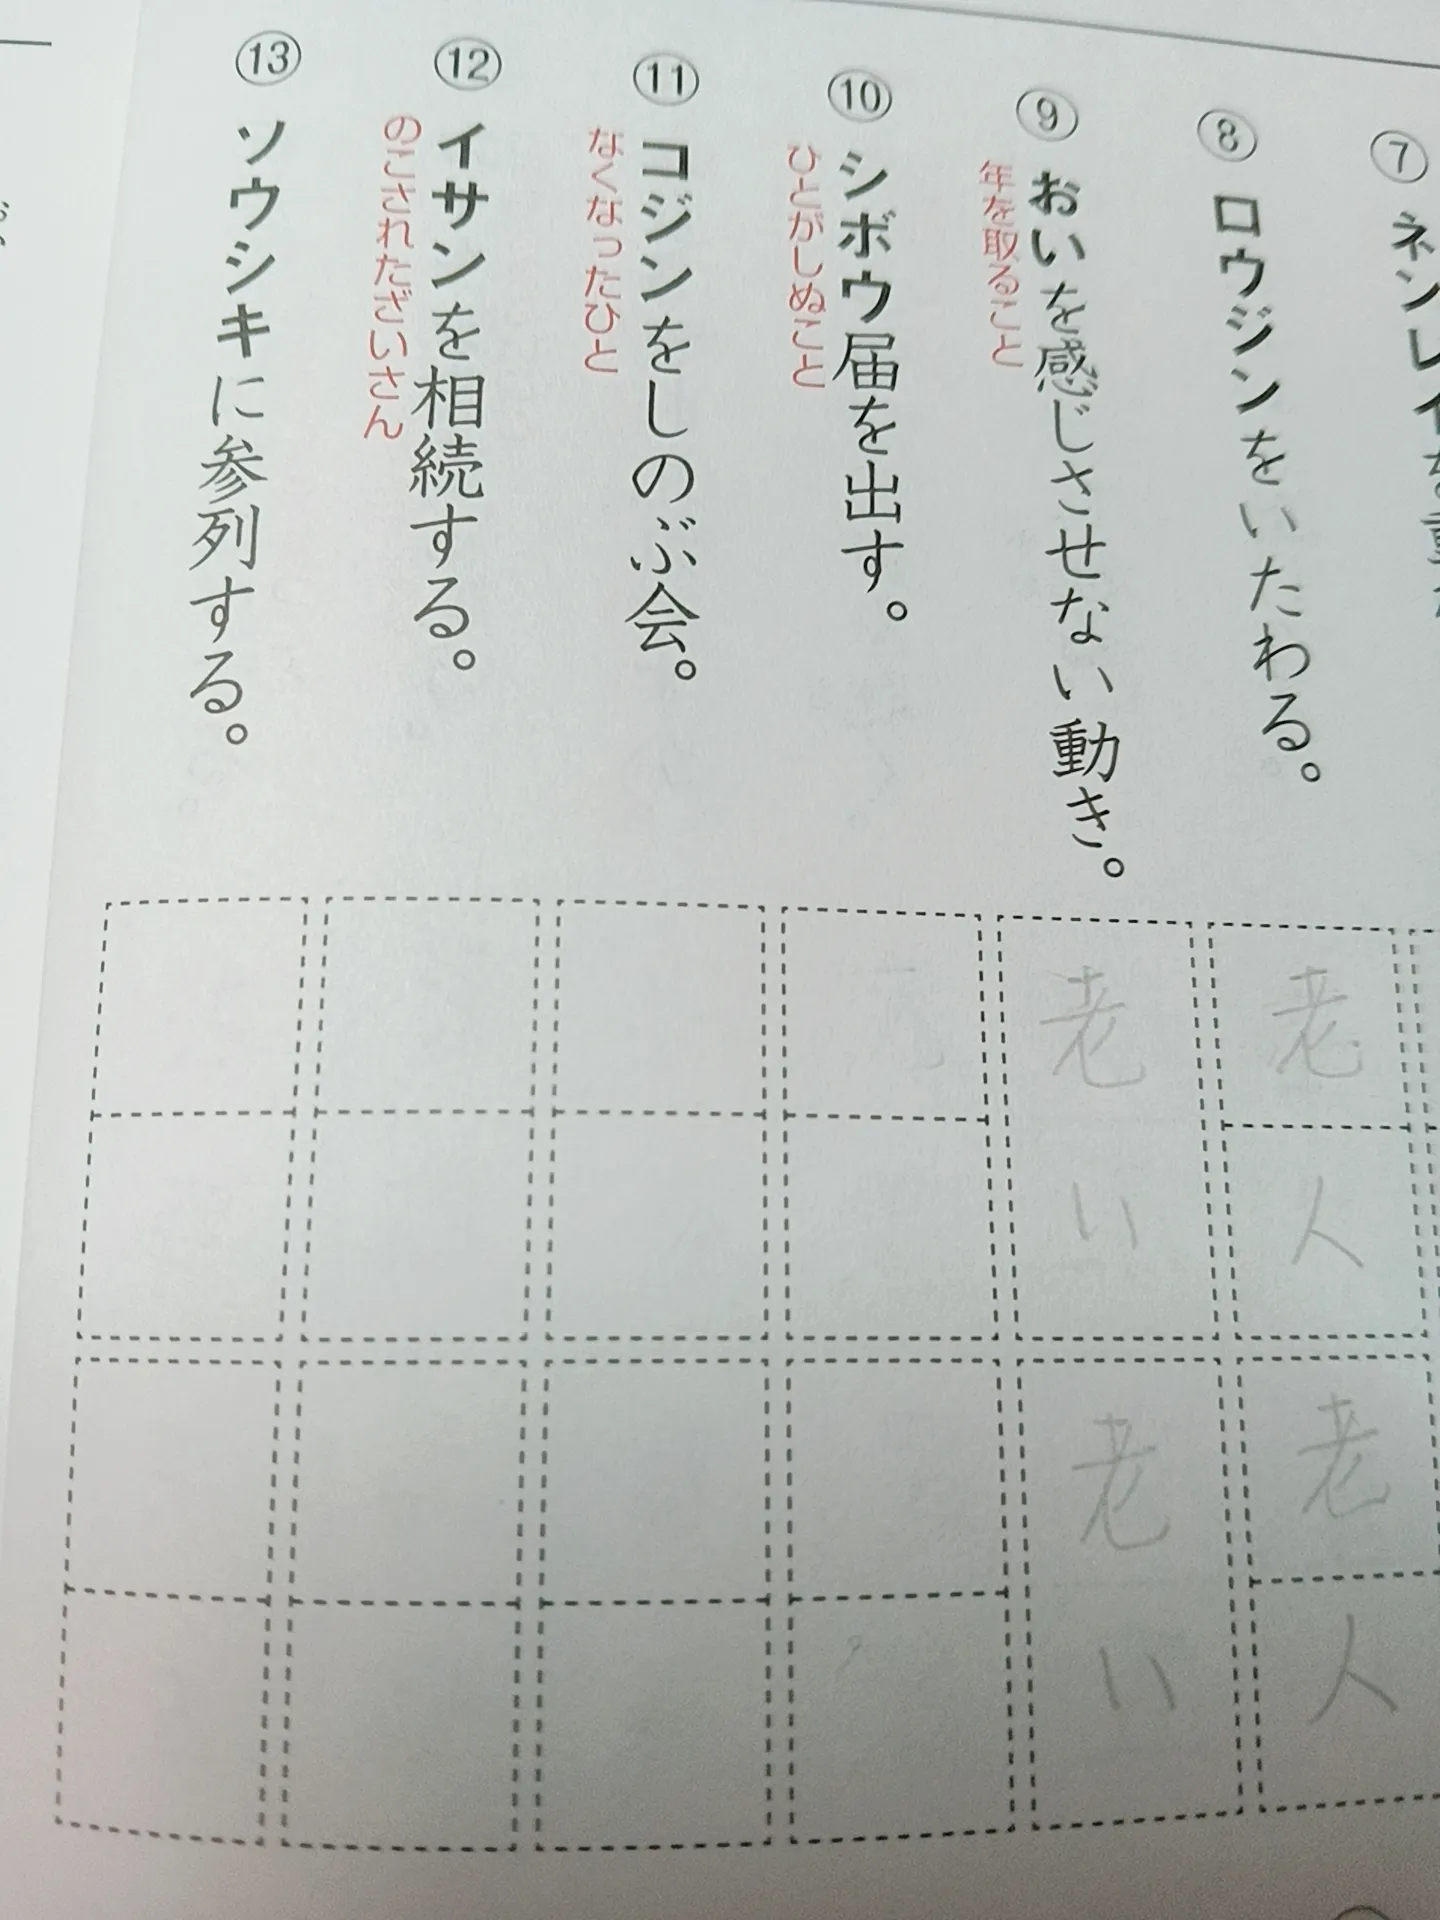 ⑦ ネンレイ
⑧ ロウジンをいたわる。
⑨ おいを感じさせない動き。
年を取ること
⑩ シボウ届を出す。
ひとがしぬこと
⑪ コジンをしのぶ会。
なくなったひと
⑫ イサンを相続する。
のこされたざいさん
⑬ ソウシキに参列する。
老人
老い
老人
老い